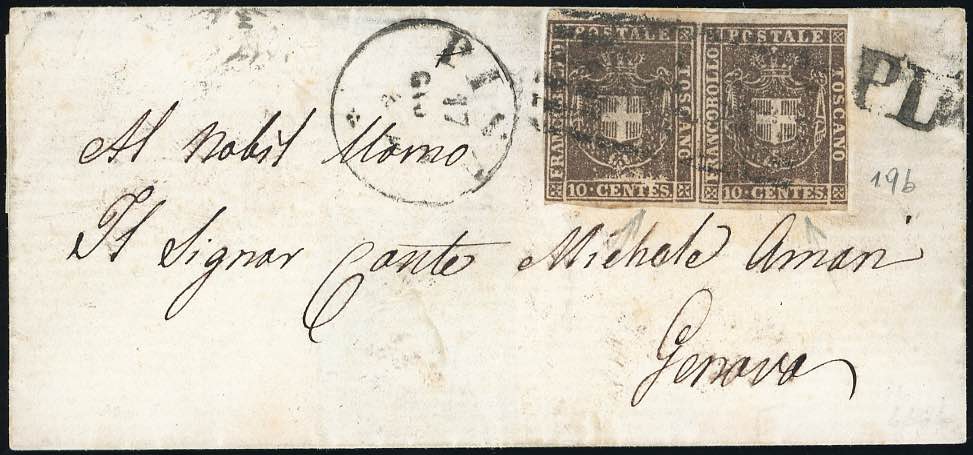 PISA
17
GIU
PD
FRANCOBOLLO POSTALE TOSCANO
10 · CENTES.
FRANCOBOLLO POSTALE TOSCANO
10 · CENTES.
19b
Al Nobil Uomo
Il Signor Conte Michele Amari
Genova